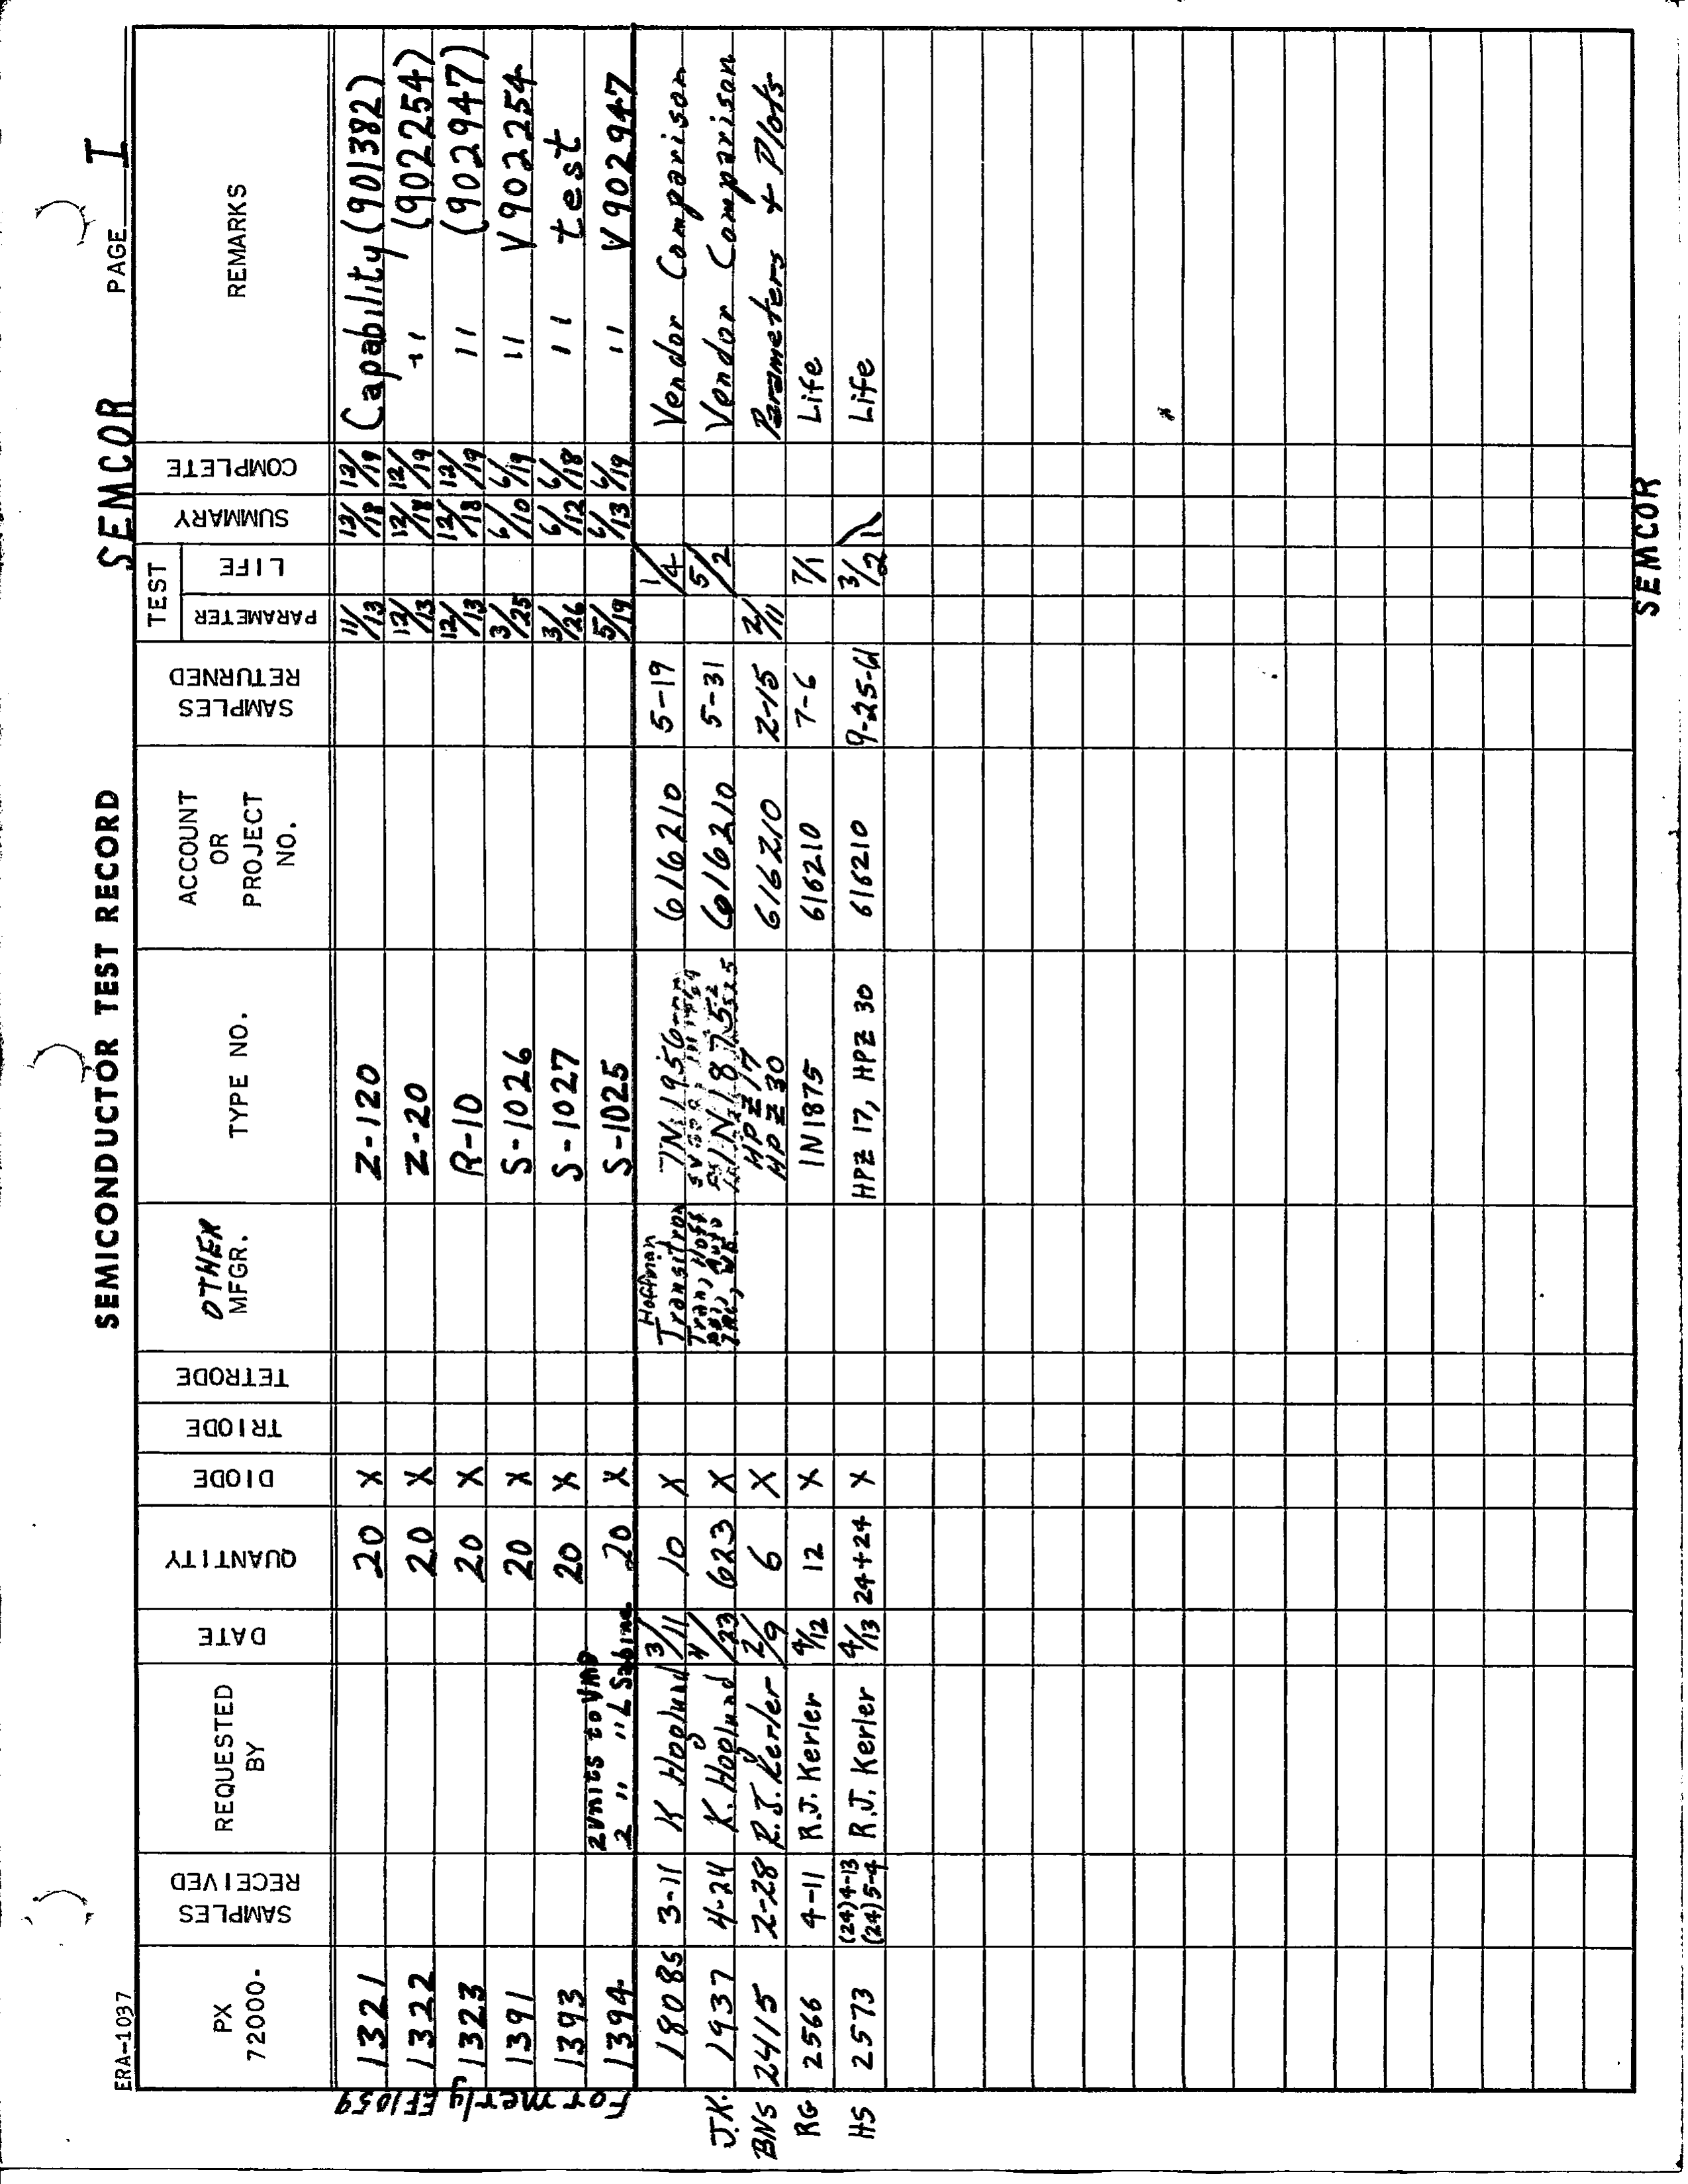 ERA-1037
SEMICONDUCTOR TEST RECORD
SEMCOR
PAGE I
PX 72000-
SAMPLES RECEIVED
REQUESTED BY
DATE
QUANTITY
DIODE
TRIODE
TETRODE
OTHER MFGR.
TYPE NO.
ACCOUNT OR PROJECT NO.
SAMPLES RETURNED
TEST
PARAMETER
LIFE
SUMMARY
COMPLETE
REMARKS
Formerly EF1059
1321 20 X Z-120 11/13 12/18 12/19 Capability (901382)
1322 20 X Z-20 12/13 12/18 12/19 " (902254)
1323 20 X R-10 12/13 12/18 12/19 " (902947)
1391 20 X S-1026 3/25 6/10 6/19 " V902254
1393 20 X S-1027 3/26 6/12 6/18 " test
2 Units to VMD
1394 2 " " L Sabine 20 X S-1025 5/19 6/13 6/19 " V902947
1808S 3-11 K Hoglund 3/11 10 X Hoffman Transitron 616210 5-19 1/4 Vendor Comparison
J.K. 1937 4-24 K. Hoglund 4/23 623 X Tran, Hoff 616210 5-31 5/2 Vendor Comparison
BNS 2415 2-28 R.J. Kerler 2/9 6 X HPZ 17 HPZ 30 616210 2-15 2/11 Parameters + Plots
RG 2566 4-11 R.J. Kerler 4/12 12 X IN1875 616210 7-6 7/1 Life
HS 2573 (24) 4-13 (24) 5-4 R.J. Kerler 4/13 24+24 X HPZ 17, HPZ 30 616210 9-25-61 3/21 Life
SEMCOR